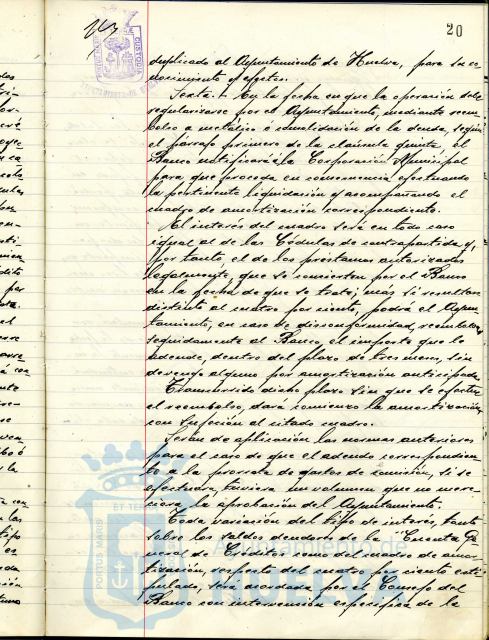 20
duplicado al Ayuntamiento de Huelva, para su co-
nocimiento y efectos.
Sexta.- En la fecha en que la operación debe
regularizarse por el Ayuntamiento, mediante reem-
bolso a metálico o consolidación de la deuda, según
el párrafo primero de la cláusula quinta, el
Banco notificará a la Corporación Municipal
para que proceda en consecuencia efectuando
la pertinente liquidación y acompañando el
cuadro de amortización correspondiente.
El interés del cuadro será en todo caso
igual al de las Cédulas de contrapartida y,
por tanto, el de los préstamos autorizados
legalmente, que se concierten por el Banco
en la fecha de que se trata; más si resultase
distinto al cuatro por ciento, podrá el Ayun-
tamiento, en caso de disconformidad, reembolsar
seguidamente al Banco, el importe que le
adeude, dentro del plazo de tres meses, sin
devengo alguno por amortización anticipada.
Transcurrido dicho plazo sin que se efectúe
el reembolso, dará comienzo la amortización
con sujeción al citado cuadro.
Serán de aplicación las normas anteriores
para el caso de que el adeudo correspondien-
te a la prorrata de gastos de emisión, si se
efectuare, tuviera un volumen que no mere-
ciera la aprobación del Ayuntamiento.
Toda variación del tipo de interés, tanto
sobre los saldos deudores de la "Cuenta Ge-
neral de Crédito" como del cuadro de amor-
tización, respecto del cuatro por ciento esti-
pulado, será acordada por el Consejo del
Banco con intervención específica de la
Ayuntamiento de
HUELVA
PORTUS MARIS
ET TER